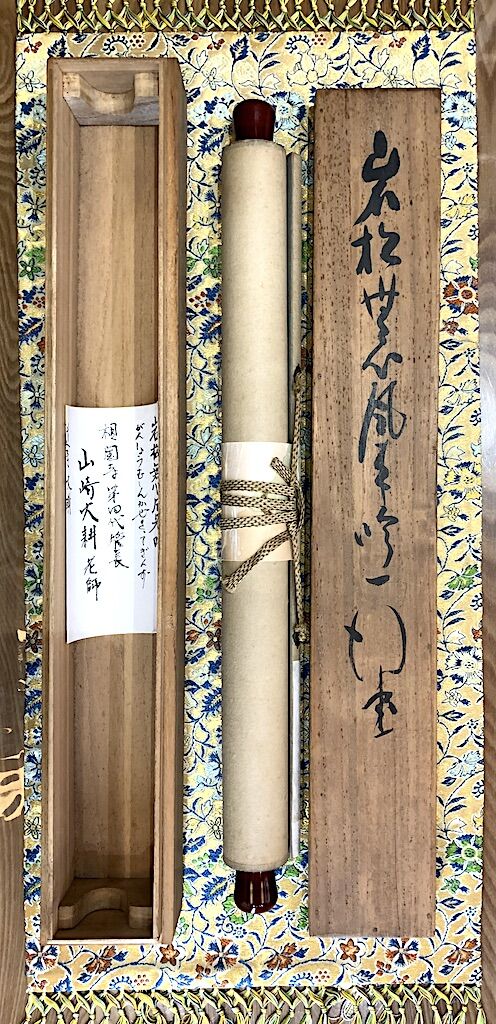 岩松無心風来吟一行書
岩松無心風来吟
がんしょうむしんかぜきたってぎんず
相国寺第四代管長
山崎大耕老師